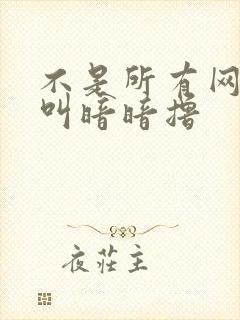 不是所有网
叫暗暗撸
夜莊主